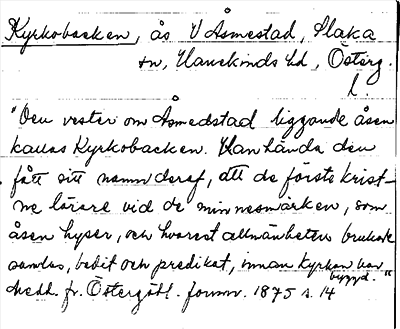 Kyrkobacken, ås V Åsmestad, Slaka
sn, Hanekinds hd, Österg.
l.
"Den vester om Åsmedstad liggande åsen
kallas Kyrkobacken. Kanhända den
fått sitt namn deraf, att de förste krist-
ne lärare vid de minnesmärken, som
åsen hyser, och hvarest allmänheten brukat
samlas, bedit och predikat, innan kyrkan var
byggd."
Medd. fr. Östergötl. fornm. 1875 s. 14